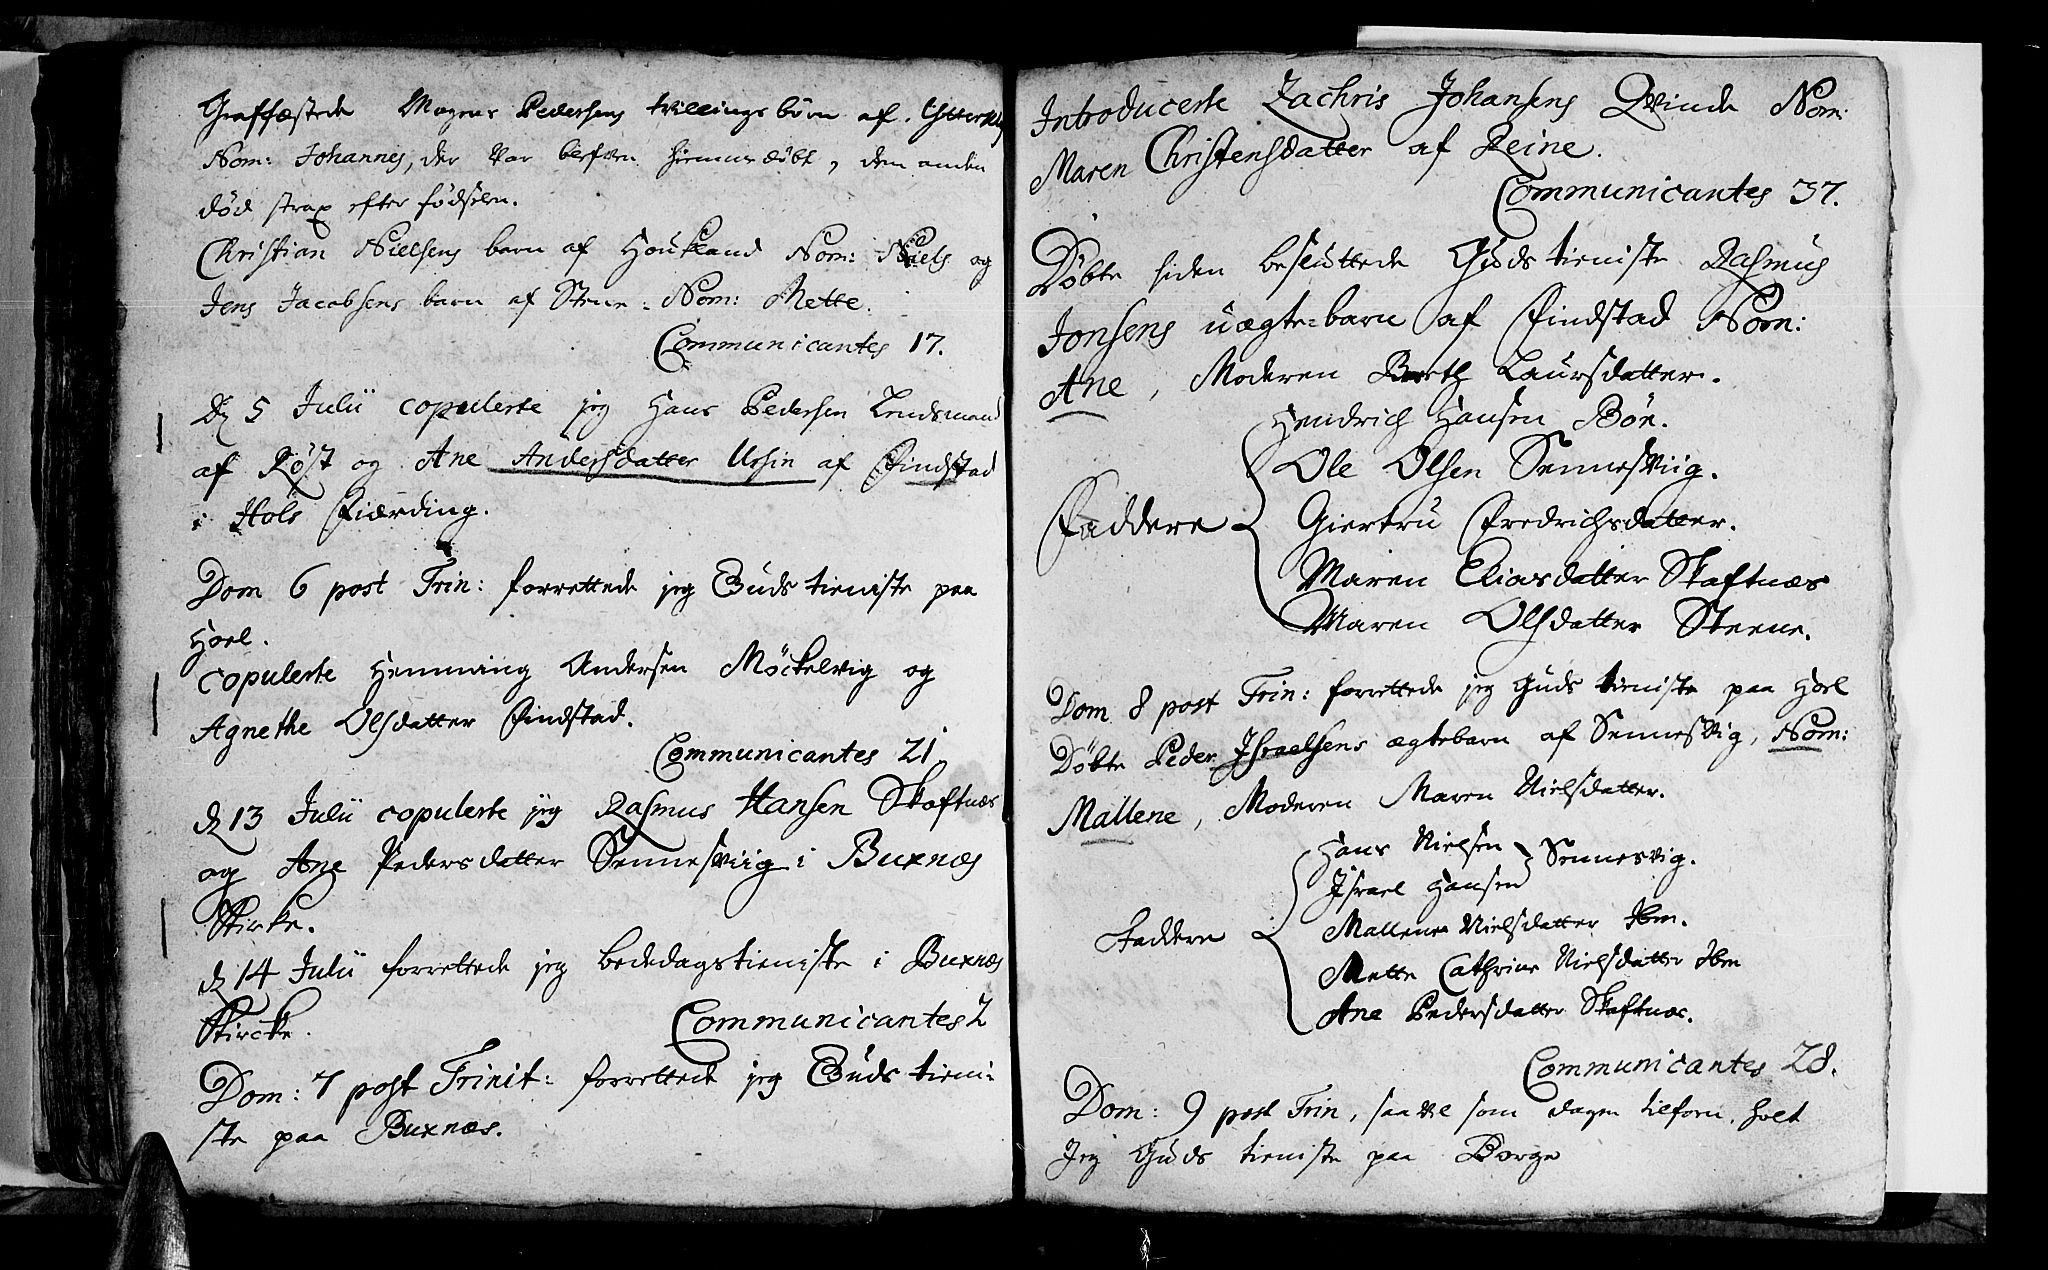 Graffæstede Mogens Pedersens tvillingsbörn af
Nom: Johannes, der var hiemmedöbt, den anden
död strax efter födselen.
Christian Nielsens barn af Houkland Nom: Niels og
Jens Jacobsens barn af Steene. Nom: Mette.
Communicantes 17.
D 5 Julii copulerte jeg Hans Pedersen Lendsmand
af Röst og Ane Andersdatter Ursin af Findstad
i Hols Fiærding.
Dom 6 post Trin: forrettede jeg Guds tieniste paa
Hoel.
copulerte Hemming Andersen Möckelvig og
Agnethe Olsdatter Findstad.
Communicantes 21
d 13 Julii copulerte jeg Rasmus Hansen Skaftnæs
og Ane Pedersdatter Sennesviig i Buxnæs
Kirke.
d 14 Julii forrettede jeg bededagstieniste i Buxnæs
Kircke. Communicantes 2
Dom: 7 post Trinit: forrettede jeg Guds tieni-
ste paa Buxnæs.
Introducerte Zachris Johansens Qvinde Nom:
Maren Christensdatter af Reine.
Communicantes 37.
Döbte siden besluttede Guds tieniste Rasmus
Jonsens uægte=barn af Findstad Nom:
Ane, Moderen Berth Laursdatter.
Hendrich Hansen Böe.
Ole Olsen Sennesviig.
Faddere Giertru Fredrichsdatter.
Maren Eliasdatter Skaftnæs
Maren Olsdatter Steene.
Dom 8 post Trin: forrettede jeg Guds tieniste paa Hoel
Döbte Peder Israelsens ægtebarn af Sennesvig, Nom:
Mallene, Moderen Maren Nielsdatter.
Hans Nielsen
Israel Hansen Sennesvig.
Faddere Mallene Nielsdatter Ibm.
Mette Cathrine Nielsdatter Ibm
Ane Pedersdatter Skaftnæs.
Communicantes 28.
Dom: 9 post Trin, saa vel som dagen tilforn, holt
Jeg Guds tieniste paa Borge